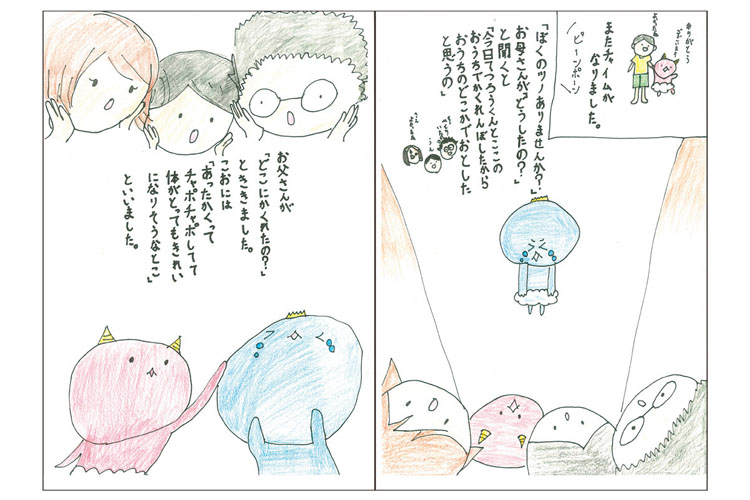 またチャイムが
なりました。
ピーンポーン
「ぼくのツノありませんか？」
お母さんが「どうしたの？」
と聞くと
「今日てつろうくんとここの
おうちでかくれんぼしたから
おうちのどこかでおとした
と思うの」
お父さんが
「どこにかくれたの？」
とききました。
こおには
「あったかくって
チャポチャポしてて
体がとってもきれい
になりそうなとこ」
といいました。